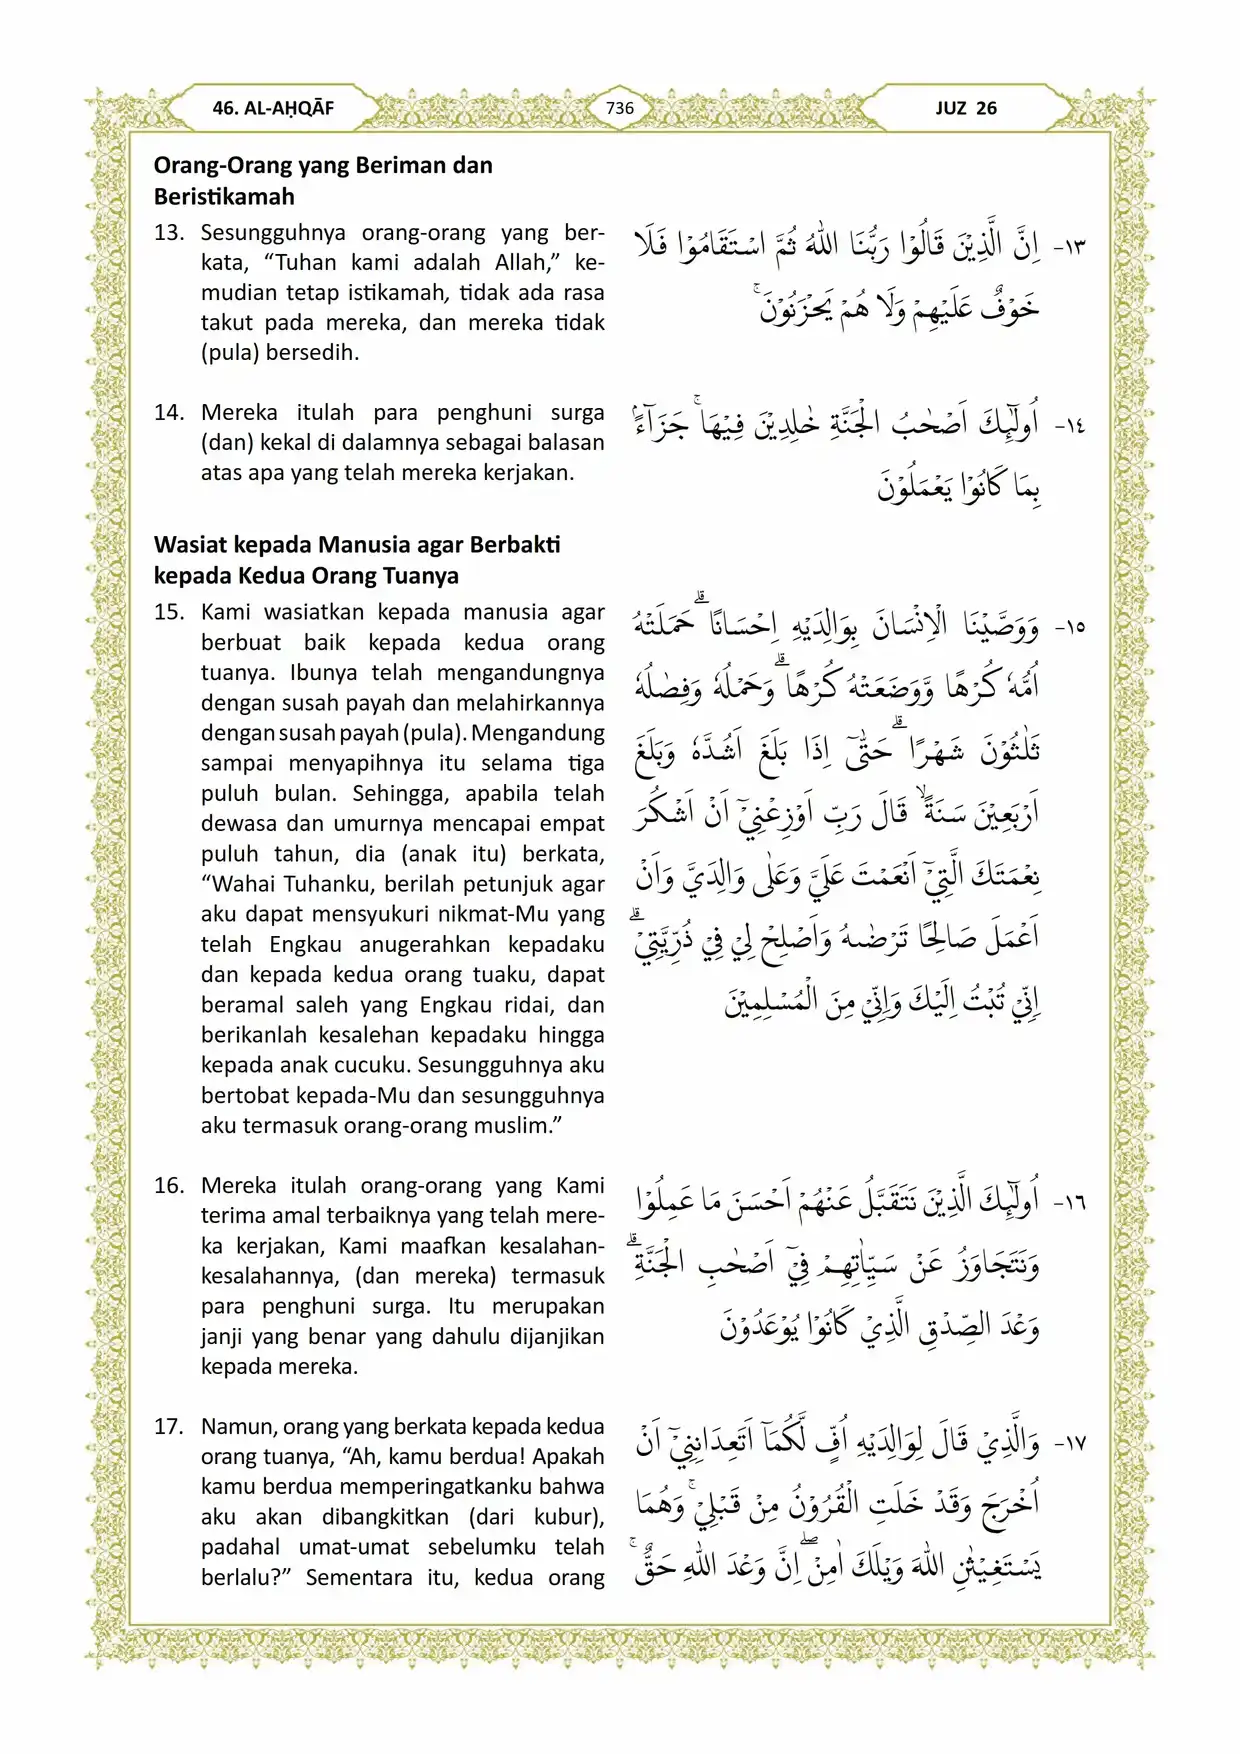 46. AL-AḤQĀF
736
JUZ 26
Orang-Orang yang Beriman dan
Beristikamah
13. Sesungguhnya orang-orang yang ber-
kata, “Tuhan kami adalah Allah,” ke-
mudian tetap istikamah, tidak ada rasa
takut pada mereka, dan mereka tidak
(pula) bersedih.
١٣- اِنَّ الَّذِيْنَ قَالُوْا رَبُّنَا اللّٰهُ ثُمَّ اسْتَقَامُوْا فَلَا
خَوْفٌ عَلَيْهِمْ وَلَا هُمْ يَحْزَنُوْنَۚ
14. Mereka itulah para penghuni surga
(dan) kekal di dalamnya sebagai balasan
atas apa yang telah mereka kerjakan.
١٤- اُولٰۤىِٕكَ اَصْحٰبُ الْجَنَّةِ خٰلِدِيْنَ فِيْهَاۚ جَزَاۤءً ۢ
بِمَا كَانُوْا يَعْمَلُوْنَ
Wasiat kepada Manusia agar Berbakti
kepada Kedua Orang Tuanya
15. Kami wasiatkan kepada manusia agar
berbuat baik kepada kedua orang
tuanya. Ibunya telah mengandungnya
dengan susah payah dan melahirkannya
dengan susah payah (pula). Mengandung
sampai menyapihnya itu selama tiga
puluh bulan. Sehingga, apabila telah
dewasa dan umurnya mencapai empat
puluh tahun, dia (anak itu) berkata,
“Wahai Tuhanku, berilah petunjuk agar
aku dapat mensyukuri nikmat-Mu yang
telah Engkau anugerahkan kepadaku
dan kepada kedua orang tuaku, dapat
beramal saleh yang Engkau ridai, dan
berikanlah kesalehan kepadaku hingga
kepada anak cucuku. Sesungguhnya aku
bertobat kepada-Mu dan sesungguhnya
aku termasuk orang-orang muslim.”
١٥- وَوَصَّيْنَا الْاِنْسَانَ بِوَالِدَيْهِ اِحْسَانًا ۗحَمَلَتْهُ
اُمُّهٗ كُرْهًا وَّوَضَعَتْهُ كُرْهًا ۗوَحَمْلُهٗ وَفِصٰلُهٗ
ثَلٰثُوْنَ شَهْرًا ۗحَتّٰىٓ اِذَا بَلَغَ اَشُدَّهٗ وَبَلَغَ
اَرْبَعِيْنَ سَنَةًۙ قَالَ رَبِّ اَوْزِعْنِيْٓ اَنْ اَشْكُرَ
نِعْمَتَكَ الَّتِيْٓ اَنْعَمْتَ عَلَيَّ وَعَلٰى وَالِدَيَّ وَاَنْ
اَعْمَلَ صَالِحًا تَرْضٰىهُ وَاَصْلِحْ لِيْ فِيْ ذُرِّيَّتِيْۗ
اِنِّيْ تُبْتُ اِلَيْكَ وَاِنِّيْ مِنَ الْمُسْلِمِيْنَ
16. Mereka itulah orang-orang yang Kami
terima amal terbaiknya yang telah mere-
ka kerjakan, Kami maafkan kesalahan-
kesalahannya, (dan mereka) termasuk
para penghuni surga. Itu merupakan
janji yang benar yang dahulu dijanjikan
kepada mereka.
١٦- اُولٰۤىِٕكَ الَّذِيْنَ نَتَقَبَّلُ عَنْهُمْ اَحْسَنَ مَا عَمِلُوْا
وَنَتَجَاوَزُ عَنْ سَيِّاٰتِهِمْ فِيْٓ اَصْحٰبِ الْجَنَّةِۗ
وَعْدَ الصِّدْقِ الَّذِيْ كَانُوْا يُوْعَدُوْنَ
17. Namun, orang yang berkata kepada kedua
orang tuanya, “Ah, kamu berdua! Apakah
kamu berdua memperingatkanku bahwa
aku akan dibangkitkan (dari kubur),
padahal umat-umat sebelumku telah
berlalu?” Sementara itu, kedua orang
١٧- وَالَّذِيْ قَالَ لِوَالِدَيْهِ اُفٍّ لَّكُمَآ اَتَعِدَانِنِيْٓ اَنْ
اُخْرَجَ وَقَدْ خَلَتِ الْقُرُوْنُ مِنْ قَبْلِيْۚ وَهُمَا
يَسْتَغِيْثٰنِ اللّٰهَ وَيْلَكَ اٰمِنْ ۖاِنَّ وَعْدَ اللّٰهِ حَقٌّۚ